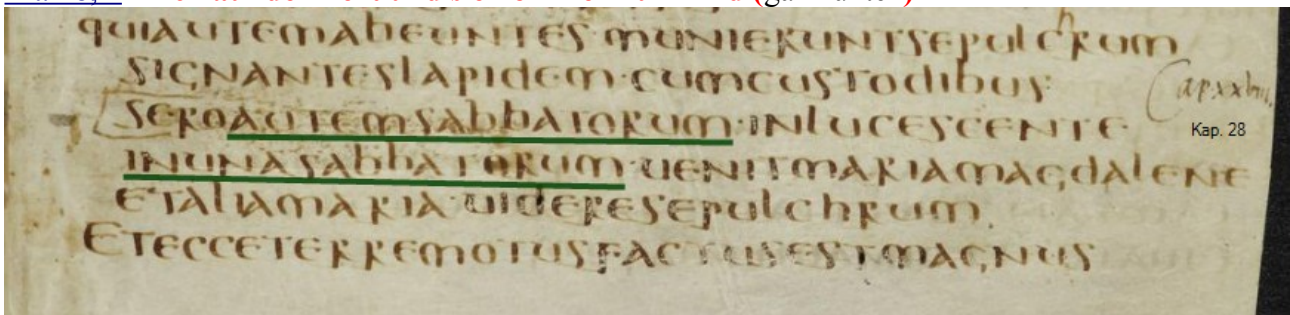 QUIAUTEMABEUNTES MUNIERUNTSEPULCHRUM
SIGNANTESLAPIDEM·CUMCUSTODIBUS·
Cap xxviii.
SEROAUTEMSABBATORUM·INLUCESCENTE
Kap. 28
INUNASABBATORUM·UENITMARIAMAGDALENE
ETALIAMARIA·UIDERESEPULCHRUM
ETECCETERREMOTUSFACTUSESTMAGNUS